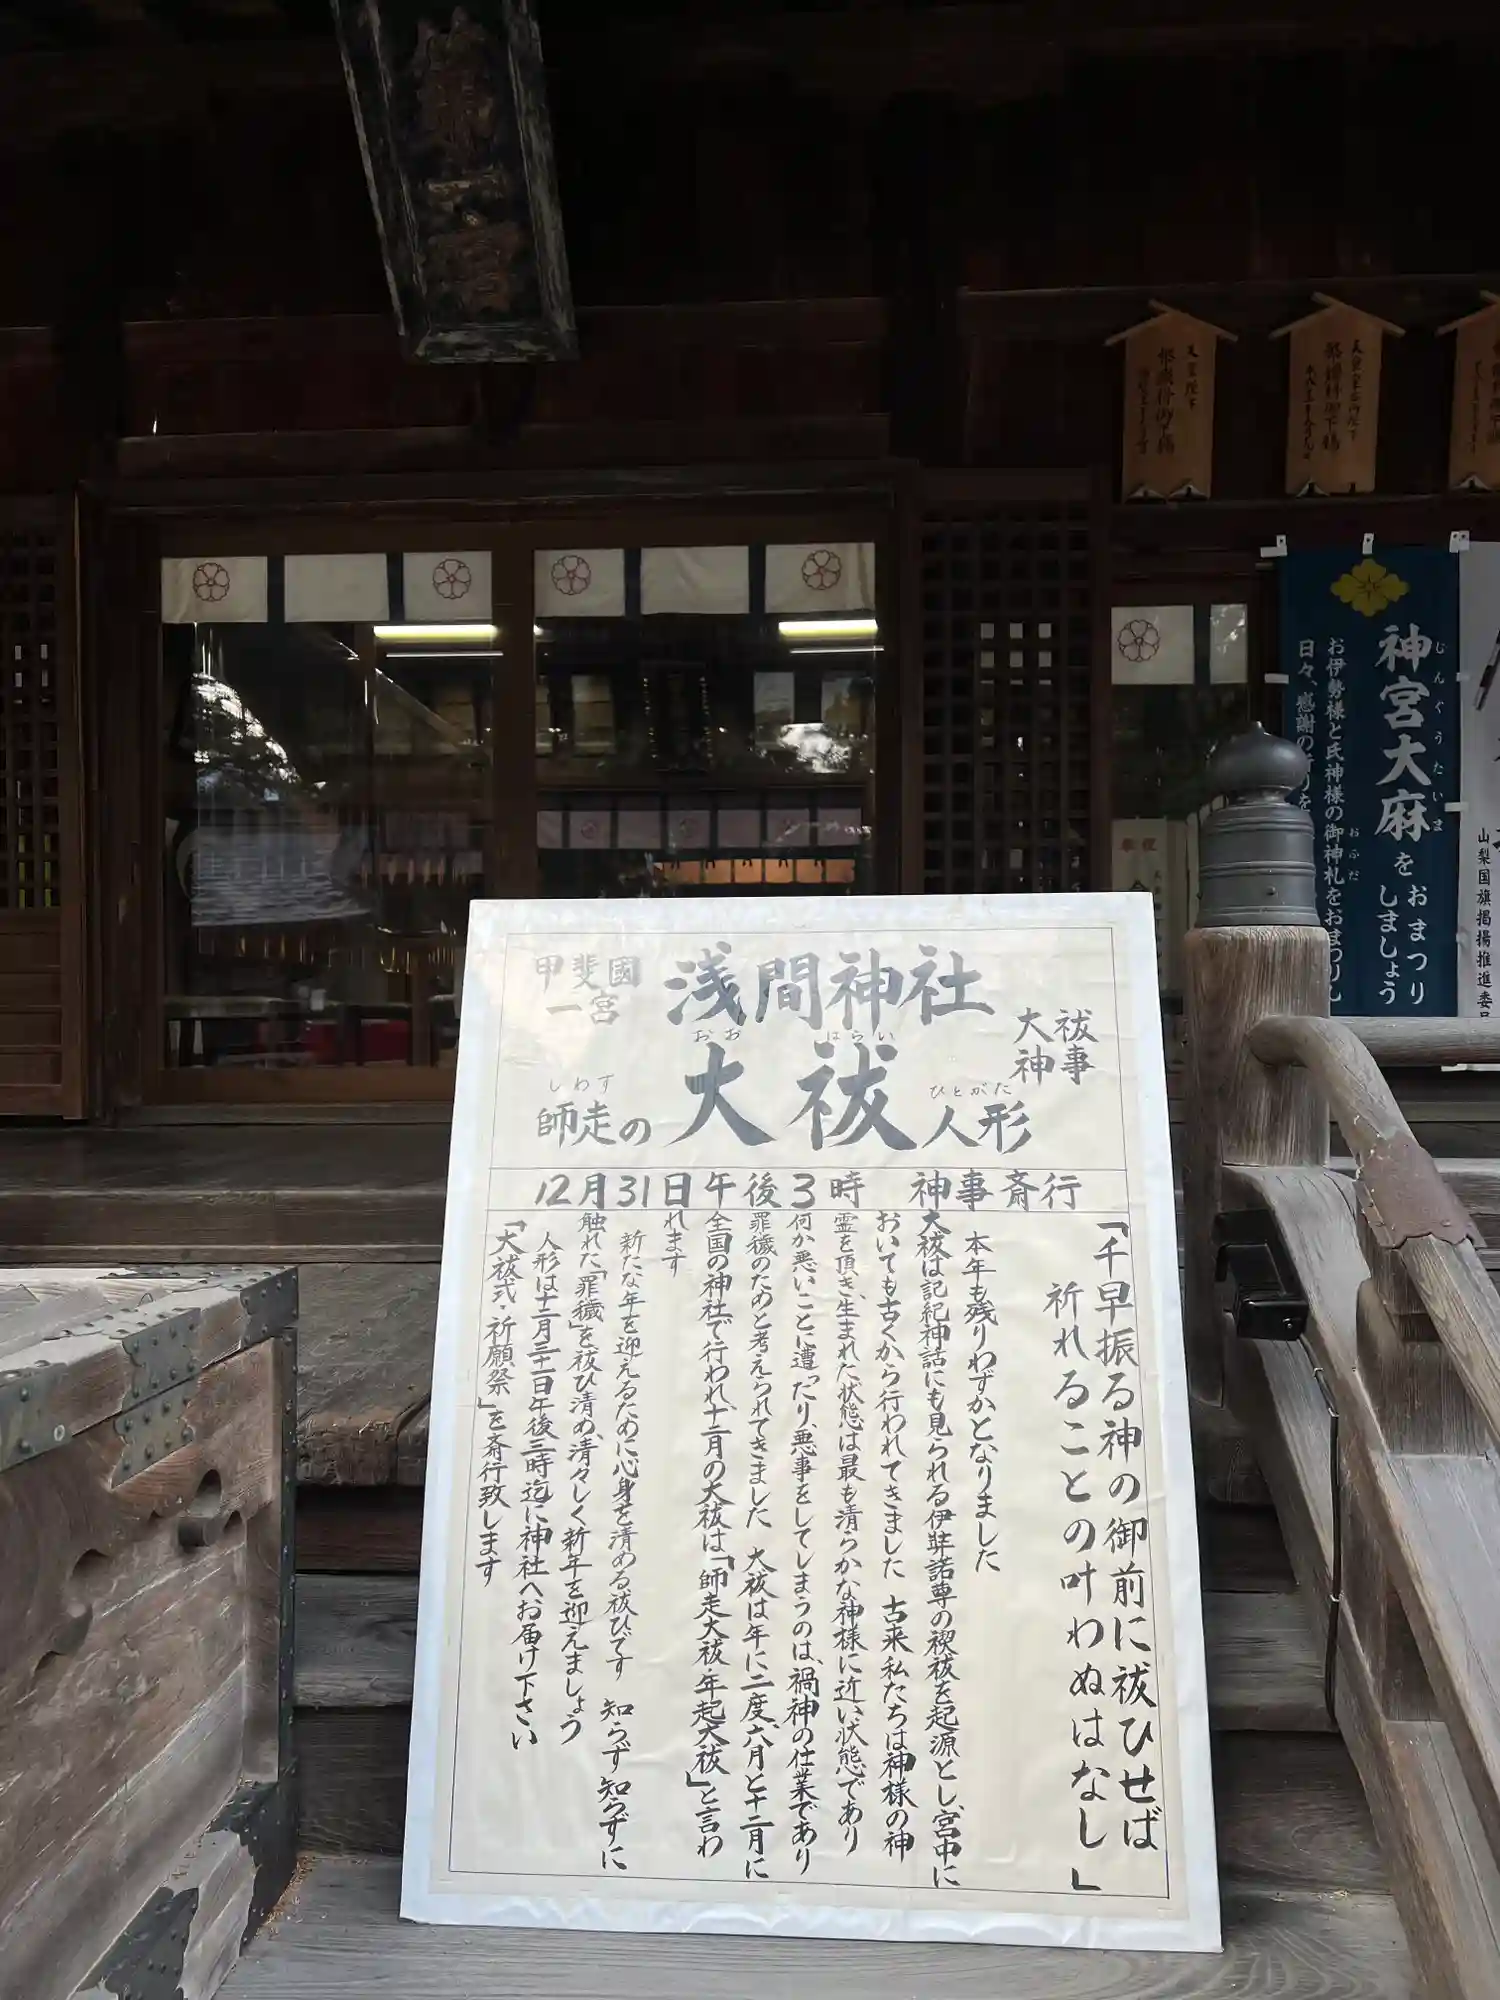 甲斐國
一宮
浅間神社
大祓
神事
しわす
師走の
おお はらい
大祓
ひとがた
人形
12月31日午後3時 神事斎行
「千早振る神の御前に祓ひせば
祈れることの叶わぬはなし」
本年も残りわずかとなりました
大祓は記紀神話にも見られる伊弉諾尊の禊祓を起源とし、宮中に
おいても古くから行われてきました 古来私たちは神様の神
霊を頂き、生まれた状態は最も清らかな神様に近い状態であり
何か悪いことに遭ったり、悪事をしてしまうのは、禍神の仕業であり
罪穢のためと考えられてきました 大祓は年に二度、六月と十二月に
全国の神社で行われ、十二月の大祓は「師走大祓・年起大祓」と言わ
れます
新たな年を迎えるために心身を清める祓ひです 知らず知らずに
触れた「罪穢」を祓ひ清め、清々しく新年を迎えましょう
人形は十二月三十一日午後三時迄に神社へお届け下さい
「大祓式・祈願祭」を斎行致します
じんぐうたいま
神宮大麻を
おまつり
しましょう
お伊勢様と氏神様の御神札をおまつりし
おふだ
日々、感謝の祈りを
山梨国旗掲揚推進委員
幣帛料御下賜